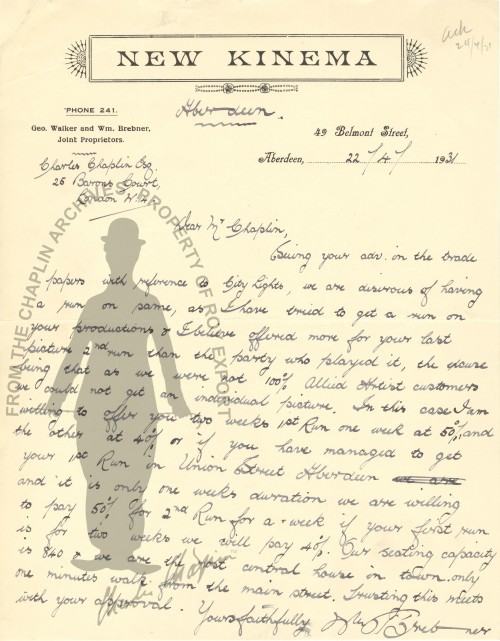 Ack
NEW KINEMA
'PHONE 241.
Aberdeen.
Geo. Walker and Wm. Brebner,
Joint Proprietors.
49 Belmont Street,
Aberdeen, 22/4/1931
Charles Chaplin Esq.
25 Barons Court,
London W.14
Dear Mr Chaplin,
Seeing your adv. in the trade
papers with reference to City Lights, we are desirous of having
a run on same, as I have tried to get a run on
your productions & I believe offered more for your last
picture 2nd run than the party who played it, the clause
being that as we were not 100% Allied Artist customers
we could not get an individual picture. In this case I am
willing to offer you two weeks 1st Run one week at 50% and
the other at 40% or if you have managed to get
your 1st Run in Union Street Aberdeen we are
and it is only one weeks duration we are willing
to pay 50% for 2nd Run for a week if your first run
is for two weeks we will pay 40%. Our seating capacity
is 840 & we are the most central house in town. only
one minutes walk from the main street. Trusting this meets
with your approval. Yours faithfully Wm Brebner
FROM THE CHAPLIN ARCHIVES. PROPERTY OF ROY EXPORT
Charlie Chaplin